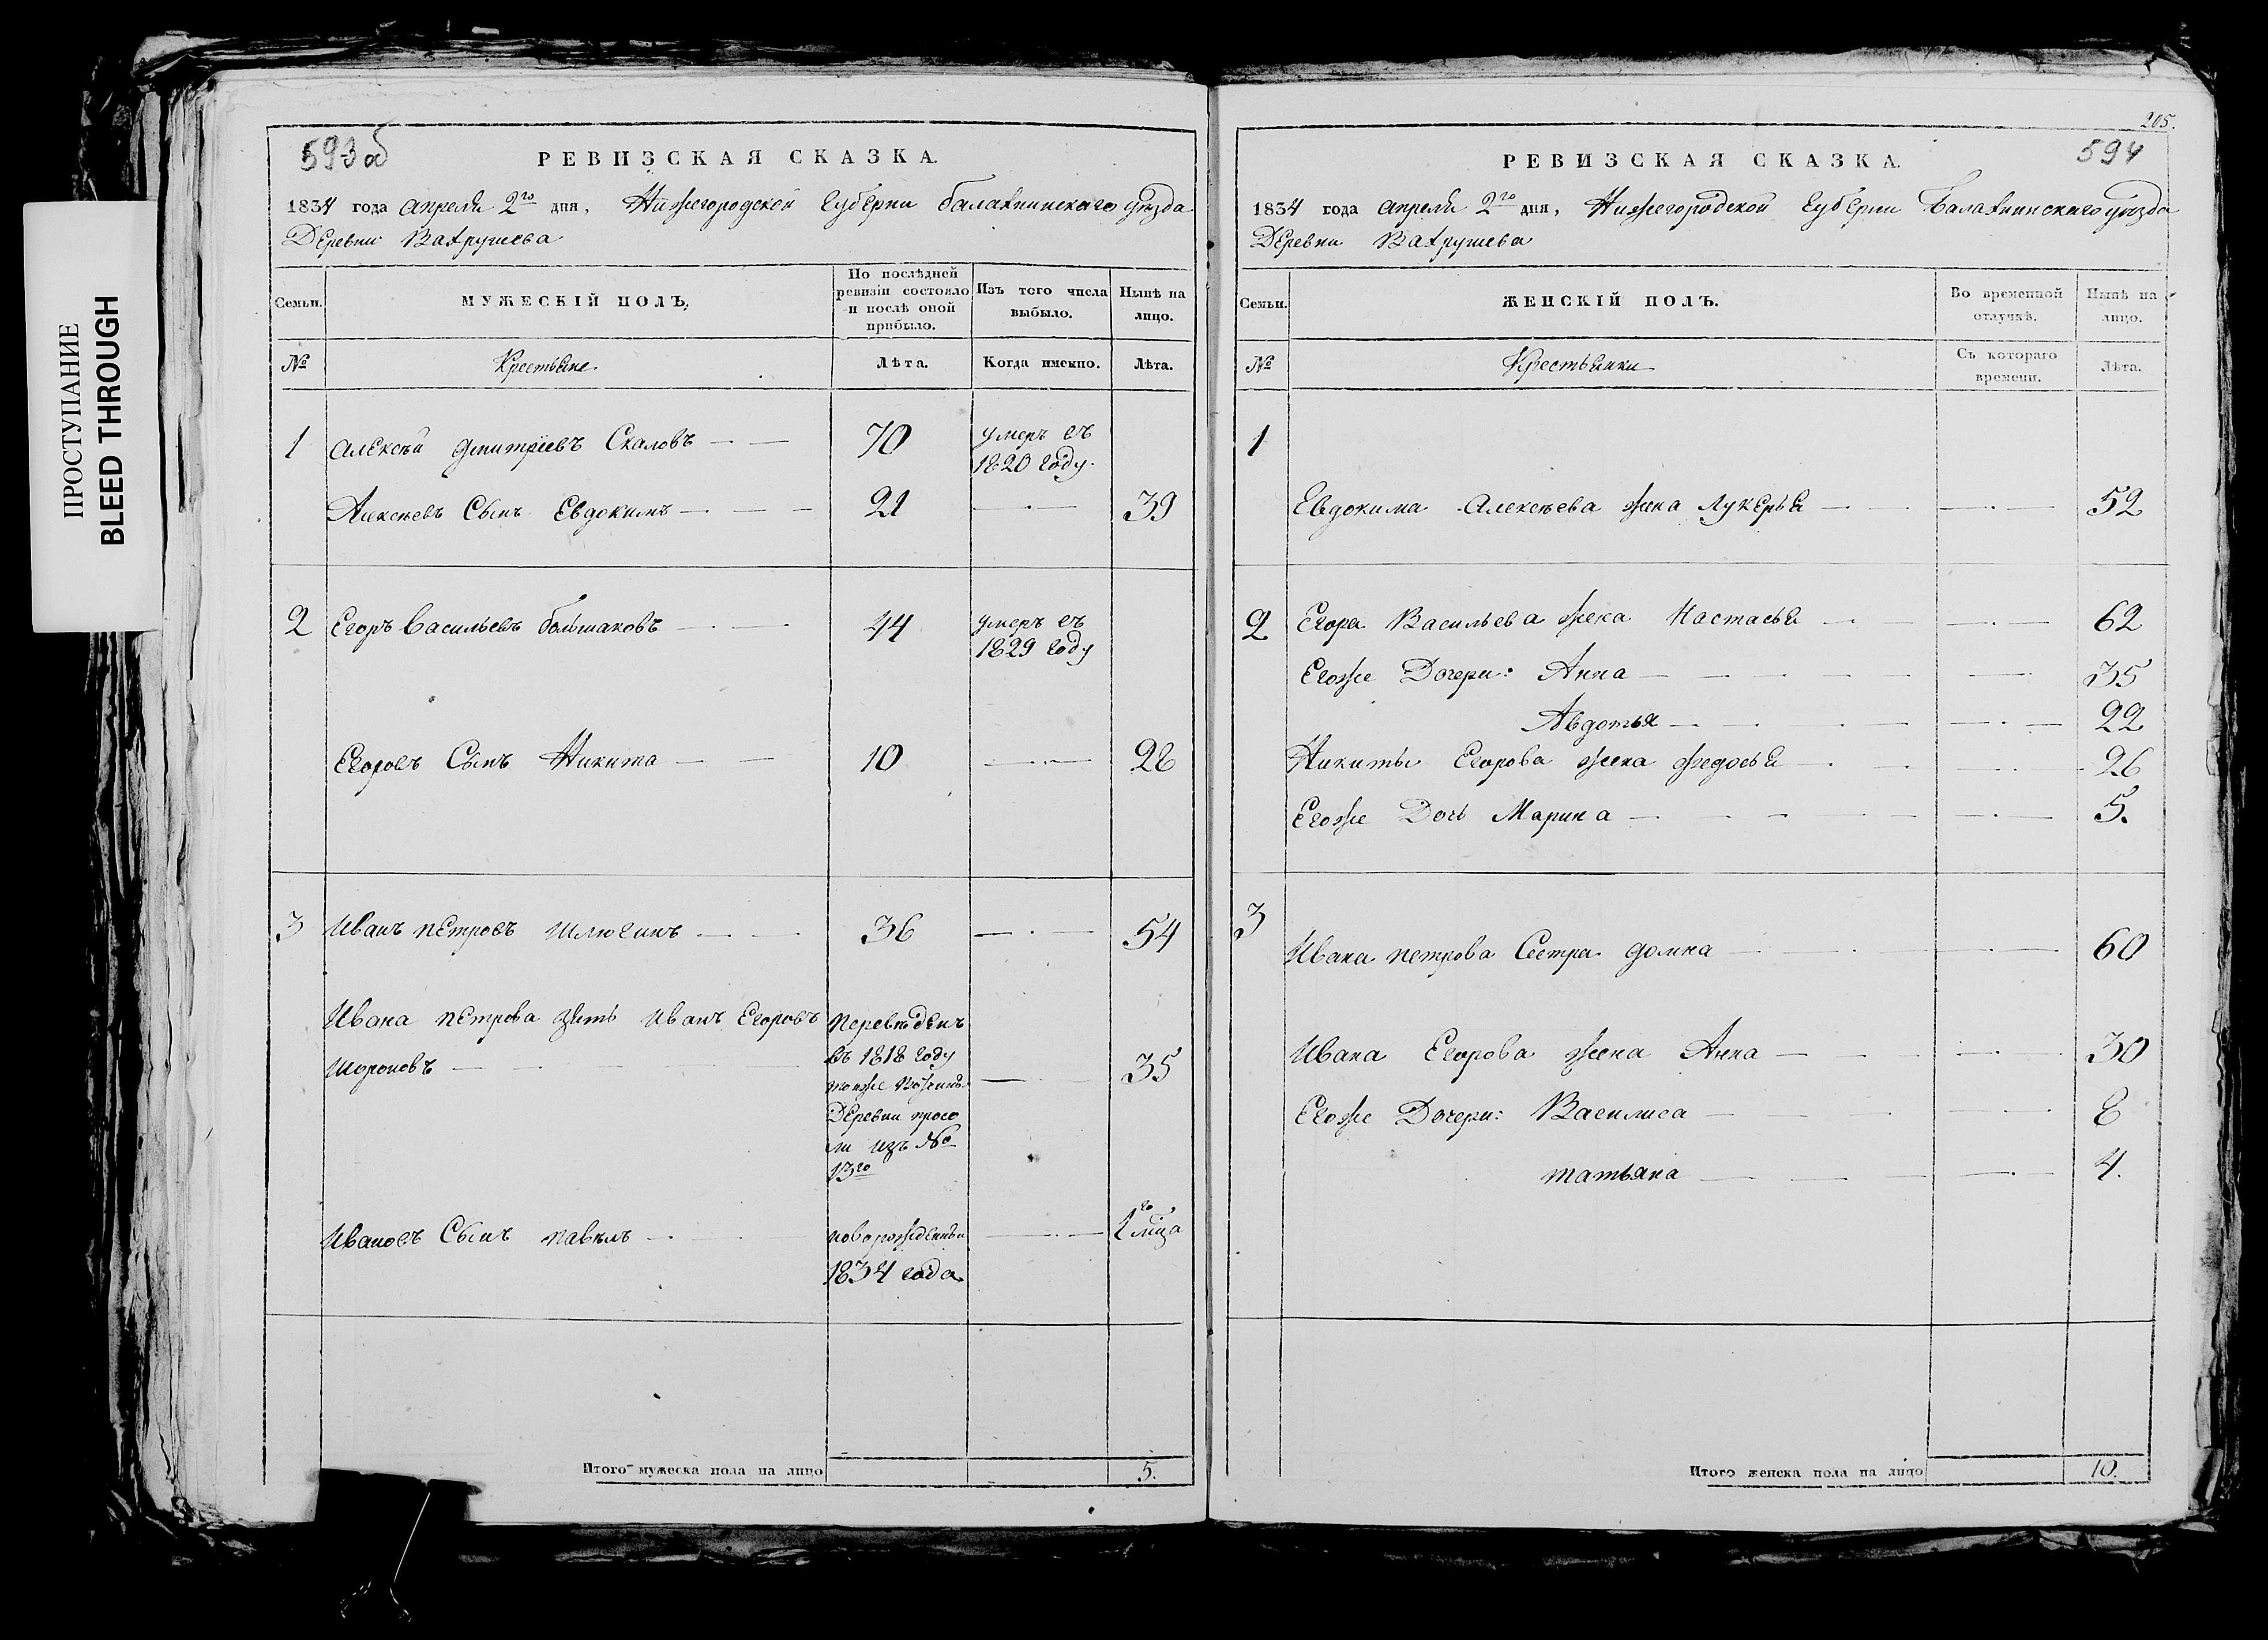 ПРОСТУПАНИЕ
BLEED THROUGH
593об
РЕВИЗСКАЯ СКАЗКА.
1834 года апреля 2го дня, Нижегородской Губернии балахнинскаго уѣзда
Деревни Вахрушева
Семьи.
МУЖЕСКІЙ ПОЛЪ.
По послѣдней ревизіи состояло и послѣ оной прибыло.
Изъ того числа выбыло.
Нынѣ на лицо.
№
Крестьяне
Лѣта.
Когда именно.
Лѣта.
1 Алексѣй Дмитріевъ Скаловъ 70 умеръ въ
1820 году.
Алексѣевъ Сынъ Евдокимъ 21 39
2 Егоръ Васильевъ большаковъ 44 умеръ въ
1829 году
Егоровъ Сынъ Никита 10 28
3 Иванъ петровъ 36 54
Ивана петрова зять иванъ Егоровъ переведенъ
въ 1818 году
Шороновъ 35
тоже
Деревни
изъ №
13го
Ивановъ Сынъ павелъ новорожденны 2 мца
1834 года
Итого мужеска пола на лицо 5.
205.
594
РЕВИЗСКАЯ СКАЗКА.
1834 года апреля 2го дня, Нижегородской Губернии Балахнинскаго уѣзда
Деревни Вахрушева
Семьи.
ЖЕНСКІЙ ПОЛЪ.
Во временной отлучкѣ.
Нынѣ на лицо.
№
Крестьянки
Съ котораго времени.
Лѣта.
1
Евдокима Алексѣева жена Лукерья 52
2 Егора Васильева жена Настасья 62
Егоже Дочери: Анна 35
Авдотья 22
Никиты Егорова жена Федосья 26
Егоже Дочь Марина 5.
3
Ивана петрова Сестра домна 60
Ивана Егорова жена Анна 30
Егоже Дочери: Василиса 8
татьяна 4.
Итого женска пола на лицо 10.